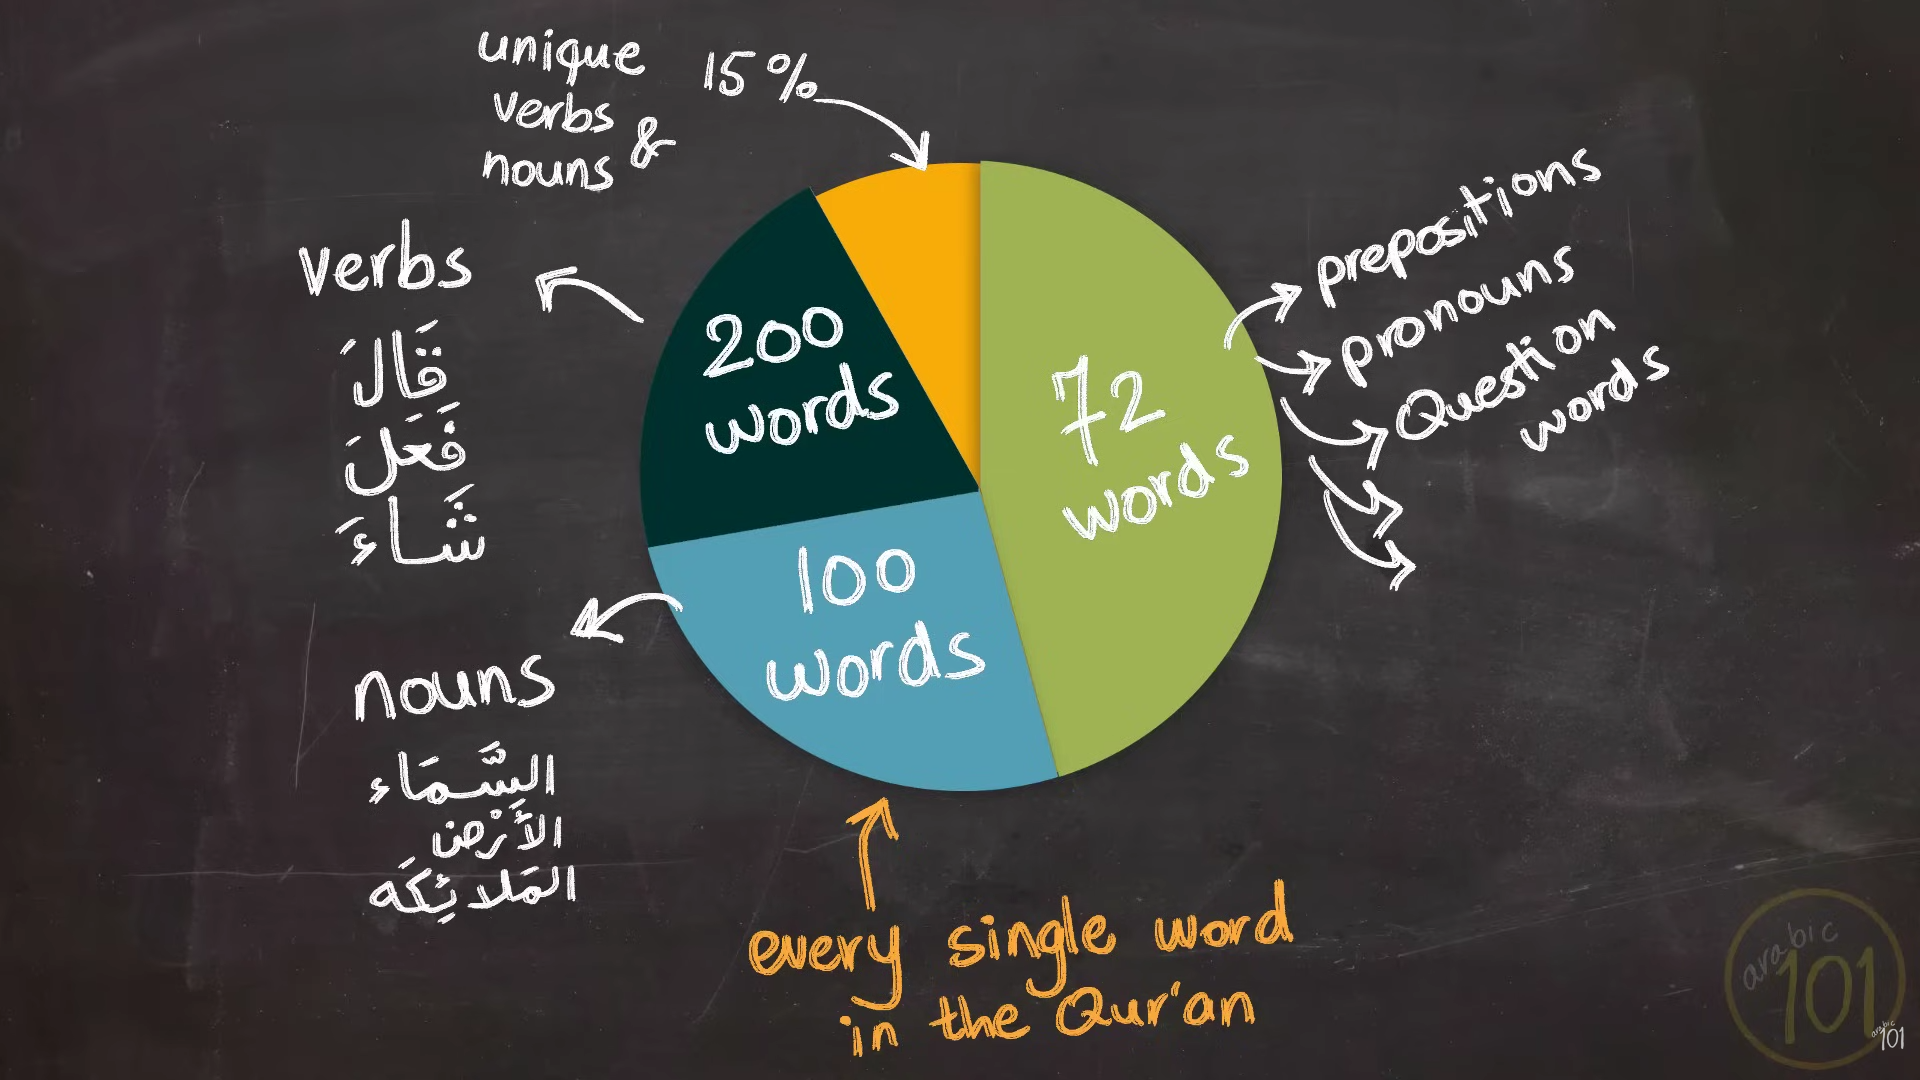 unique
verbs &
nouns
15%
verbs
قَالَ
فَعَلَ
شَاءَ
200
words
72
words
100
words
prepositions
pronouns
Question
words
nouns
السَّمَاء
الأَرْض
المَلائِكَه
every single word
in the Qur'an
arabic
101
arabic
101